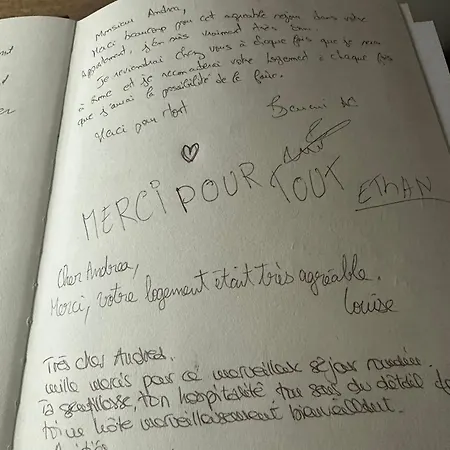 Monsieur Andrea,
Merci beaucoup pour cet agréable séjour dans votre
appartement, j'en suis vraiment très
Je reviendrai chez vous à chaque fois que je
à Rome et je recommanderai votre logement à chaque fois
que j'aurai la possibilité de le faire.
Merci pour tout
MERCI POUR TOUT
ETHAN
Cher Andrea,
Merci, votre logement était très agréable.
Louise
Très cher Andrea.
mille mercis pour ce merveilleux séjour romain.
Ta gentillesse, ton hospitalité ton sens du détail
toi un hôte merveilleusement bienveillant.